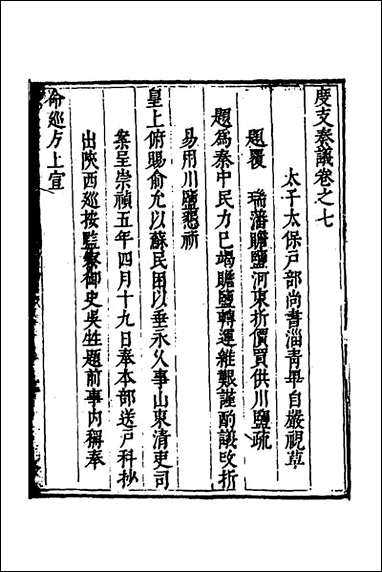 度支奏議卷之七
太子太保戶部尚書淄青畢自嚴視草
題覆　瑞藩贍鹽河東折價買供川鹽疏
題爲秦中民力已竭贍鹽轉運維艱謹酌議改折
易用川鹽懇祈
皇上俯賜俞允以蘇民困以垂永久事山東清吏司
案呈崇禎五年四月十九日奉本部送戶科抄
出陝西巡按監察御史吳甡題前事內稱奉
命巡方上宣